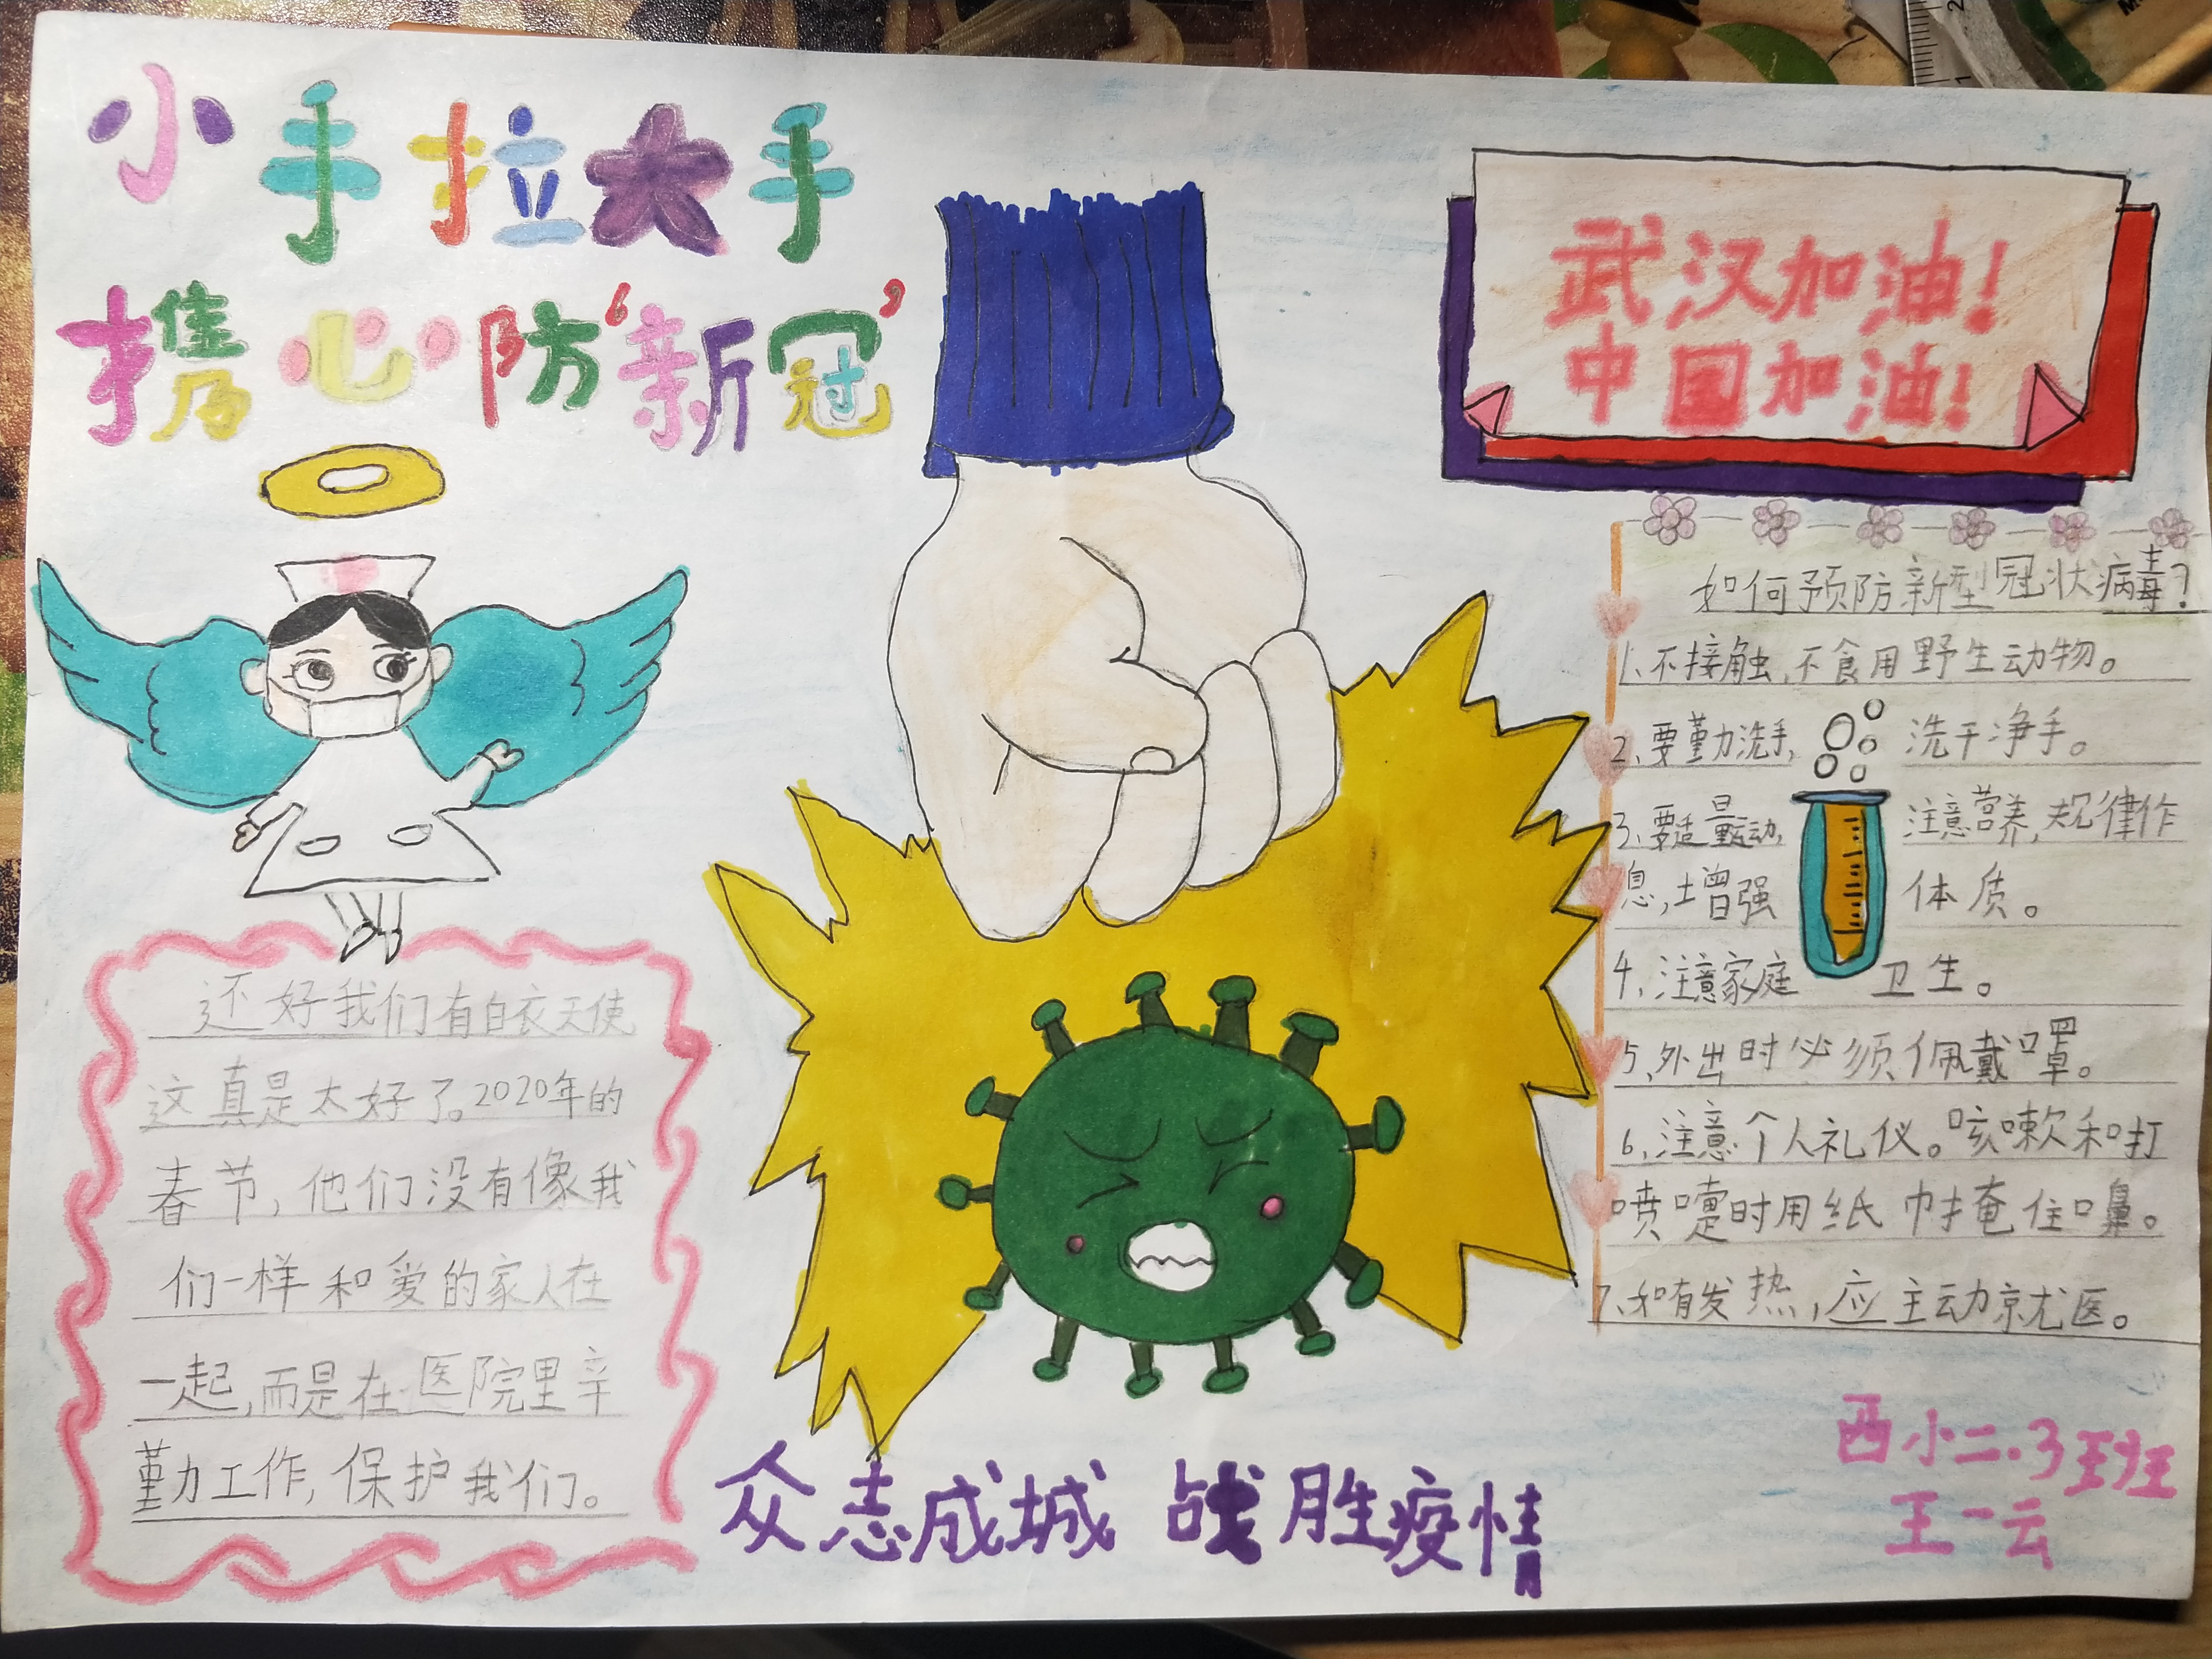 小手拉大手
携心防“新冠”
武汉加油!
中国加油!
还好我们有白衣天使
这真是太好了。2020年的
春节,他们没有像我
们一样和爱的家人在
一起,而是在医院里辛
勤力工作,保护我们。
如何预防新型冠状病毒?
1、不接触,不食用野生动物。
2、要勤洗手,洗干净手。
3、要适量运动,注意营养,规律作
息,增强体质。
4、注意家庭卫生。
5、外出时必须佩戴口罩。
6、注意个人礼仪。咳嗽和打
喷嚏时用纸巾掩住口鼻。
7、和有发热,应主动就医。
众志成城 战胜疫情
西小二.3班
王一云